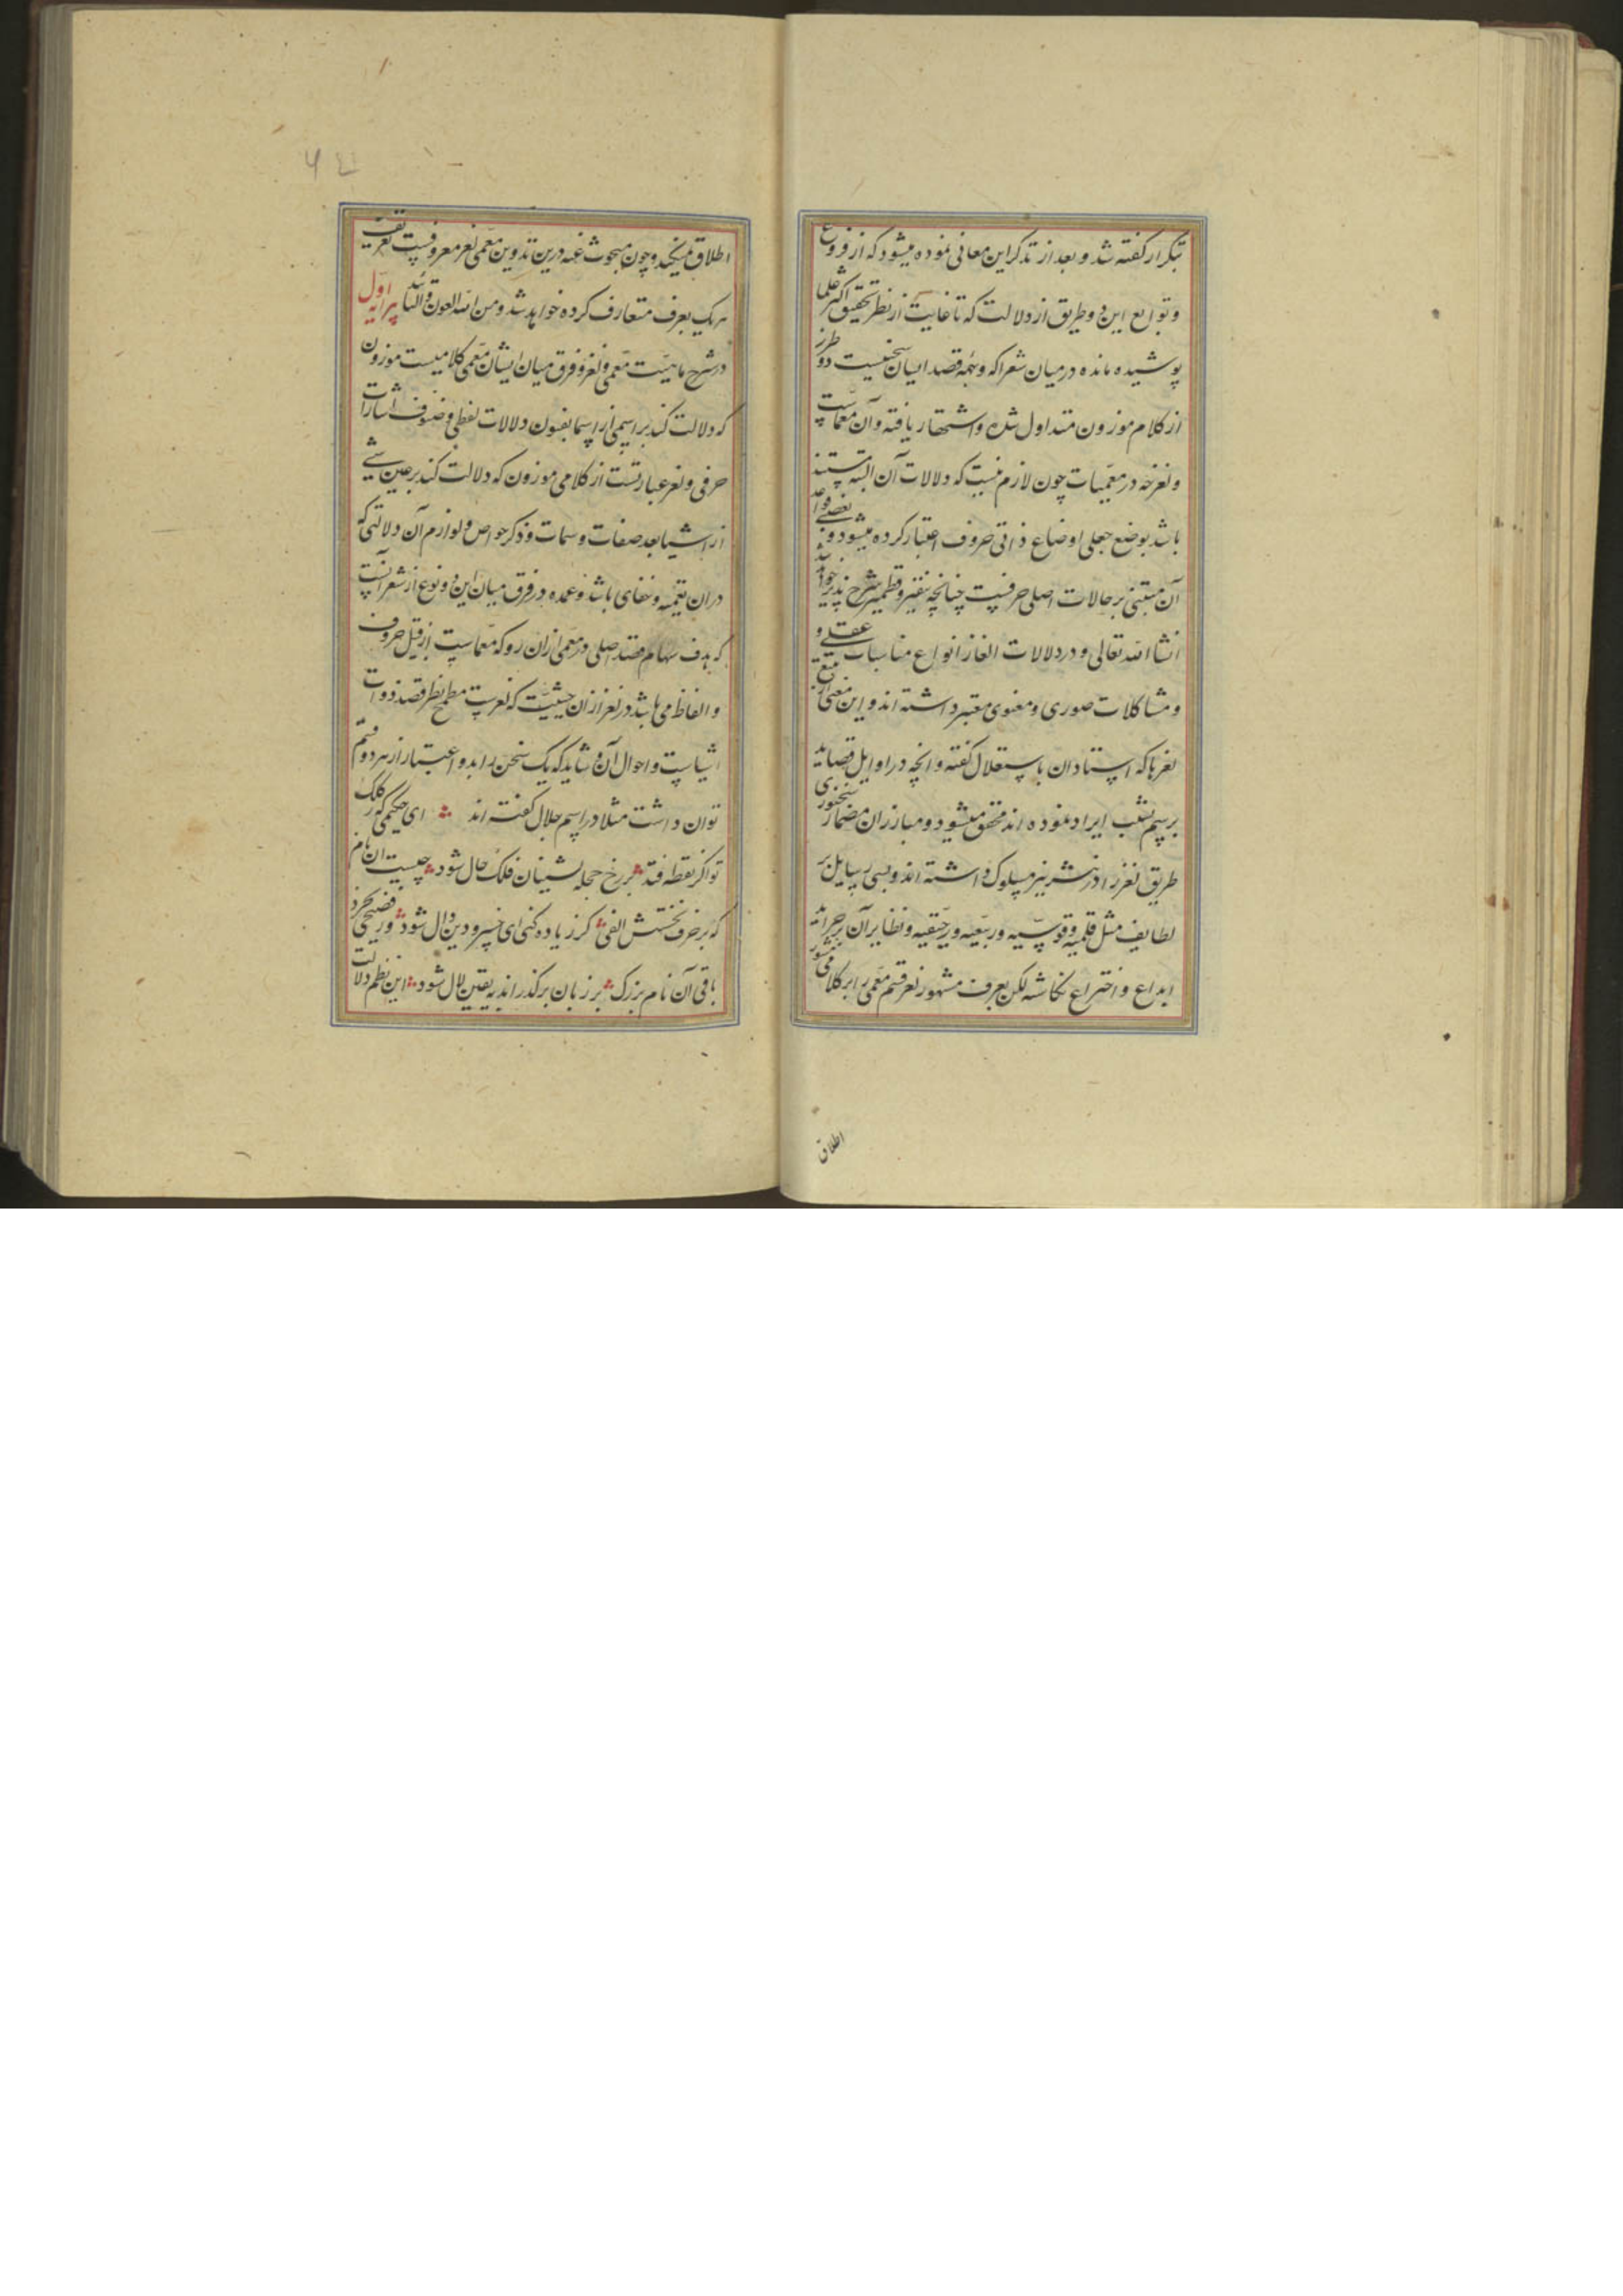 بتکرار گفته شد و بعد از تذکر این معانی نموده میشود که از فروع
و توابع این دو طریق از دلالت که تا غایت از نظر تحقیق اکثر علما
پوشیده مانده در میان شعرا که وجهه قصد ایشان سخنیست دو طرز
از کلام موزون متداول شده و اشتهار یافته و آن معماست
و لغز چه در معمیات چون لازم نیست که دلالات آن البته مستند
باشد بوضع جعلی اوضاع ذاتی حروف اعتبار کرده میشود و بعضی قواعد
آن مبتنی بر حالات اصلی حرفیست چنانچه بنقیر و قطمیر شرح پذیر خواهد شد
انشاالله تعالی و در دلالات الغاز انواع مناسبات عقلی و
و مشاکلات صوری و معنوی معتبر داشته اند و این معنی از تتبع
لغزها که استادان باستقلال گفته و انچه در اوایل قصاید
برسم نسیب ایراد نموده اند محقق میشود و مبارزان مضمار سخنوری
طریق لغز را در نثر نیز مسلوک داشته اند و بسی رسایل بر
لطایف مثل قلمیه و قوسیه و ربیعیه و رحیقیه و نظایر آن بر جراید
ابداع و اختراع نگاشته لکن بعرف مشهور لغز قسم معمی را بر کلام منثور
اطلاق
اطلاق نمیکنند و چون مبحوث عنه درین تدوین معمی لغز معروفست تعریف
هر یک بعرف متعارف کرده خواهد شد و من الله العون و التایید پیرایه اول
در شرح ماهیت معمی و لغز و فرق میان ایشان معمی کلامیست موزون
که دلالت کند بر اسمی از اسما بفنون دلالات لفظی و صنوف اشارات
حرفی و لغز عبارتست از کلامی موزون که دلالت کند بر عین شیء
از اشیا بعد صفات و سمات و ذکر خواص و لوازم آن دلالتی که
در ان تعمیه و خفای باشد و عمده در فرق میان این دو نوع از شعر آنست
که هدف سهام قصد اصلی در معمی ازان رو که معماست از قبیل حروف
و الفاظ می باشد و در لغز ازان حیثیت که لغزست مطمح نظر قصد ذوات
اشیاست و احوال آن و شاید که یک سخن را بدو اعتبار از هر دو قسم
توان داشت مثلا در اسم جلال گفته اند ای حکیمی که ز کلک
تو اگر نقطه فتد بر رخ حجله نشینان فلک خال شود چیست ان نام
که بر حرف نخستش الفی گر زیاده کنی ای خسرو دین دال شود ور فصیحی بخرد
باقی آن نام بزرک بر زبان برگذراند به یقین لال شود این نظم دلالت